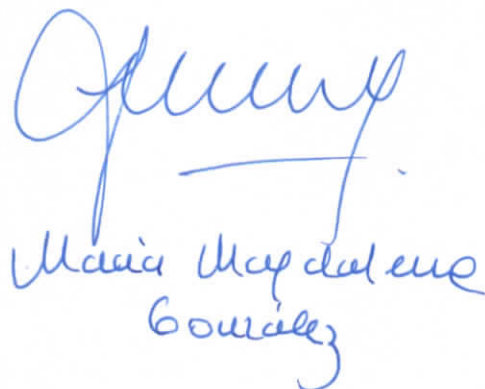 María Magdalena
González